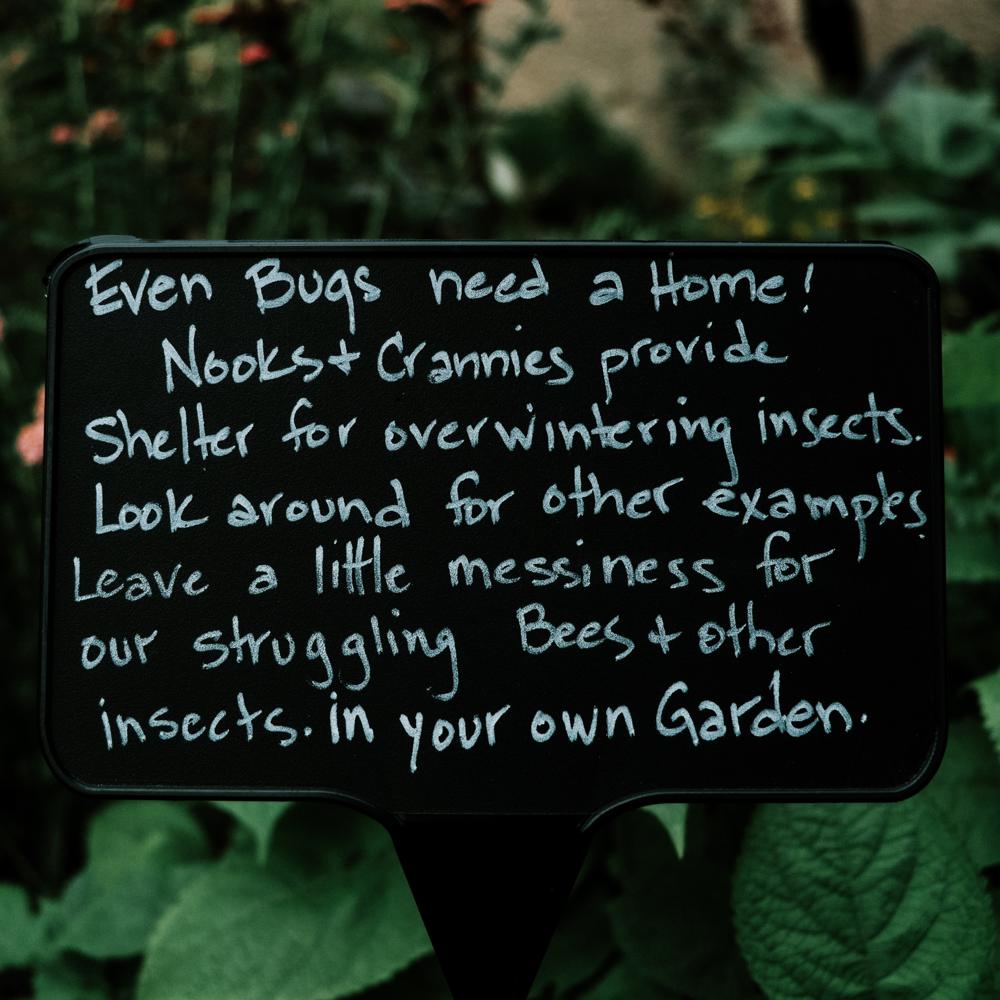 Even Bugs need a Home!
Nooks + Crannies provide
Shelter for overwintering insects.
Look around for other examples.
Leave a little messiness for
our struggling Bees + other
insects. in your own Garden.